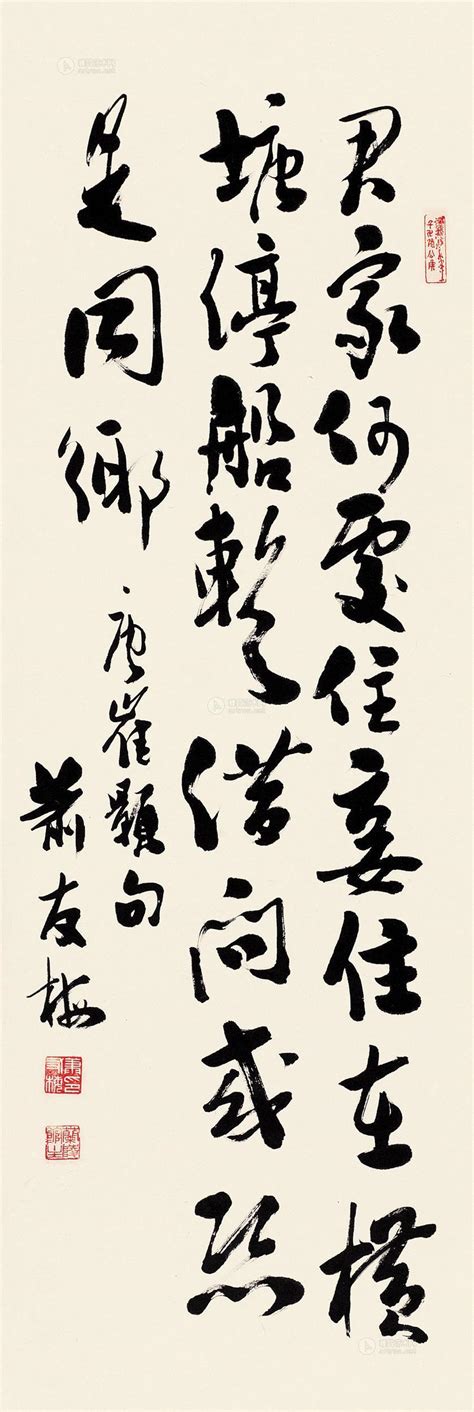 君家何處住妾住在橫
塘停船暫借問或恐
是同鄉
唐崔顥句
蕭友梅